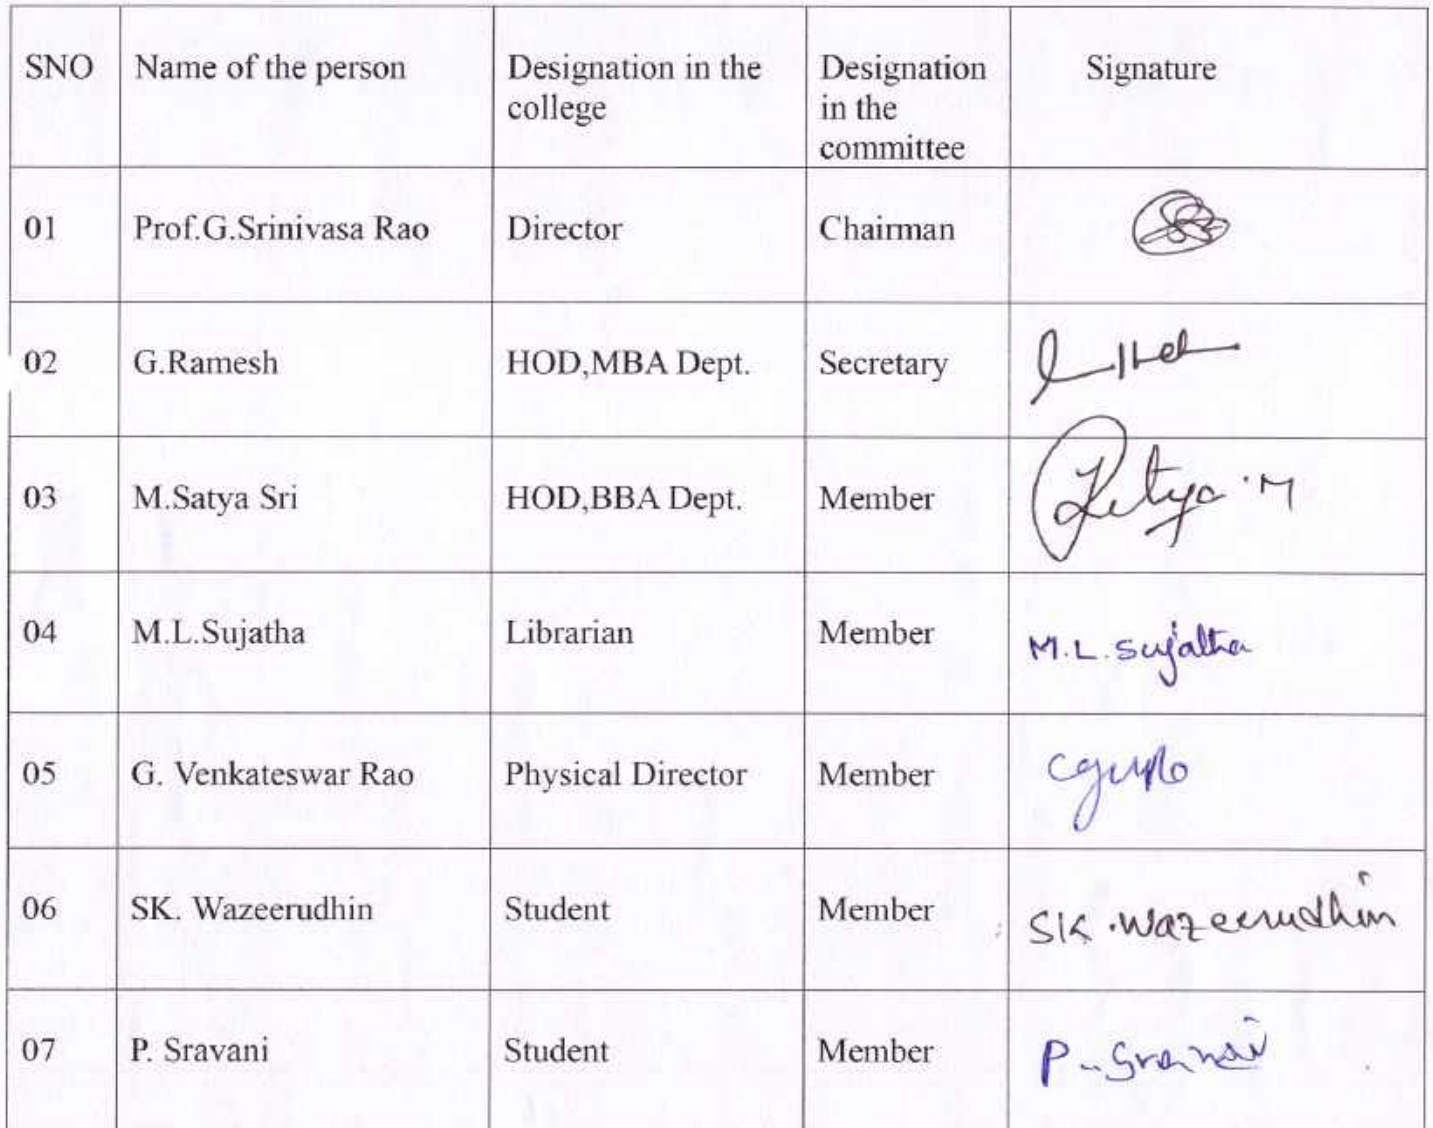 SNO Name of the person Designation in the Designation Signature
college in the
committee
01 Prof.G.Srinivasa Rao Director Chairman
02 G.Ramesh HOD,MBA Dept. Secretary
03 M.Satya Sri HOD,BBA Dept. Member
04 M.L.Sujatha Librarian Member M.L.Sujatha
05 G. Venkateswar Rao Physical Director Member
06 SK. Wazeerudhin Student Member SK.Wazeerudhin
07 P. Sravani Student Member P. Sravani